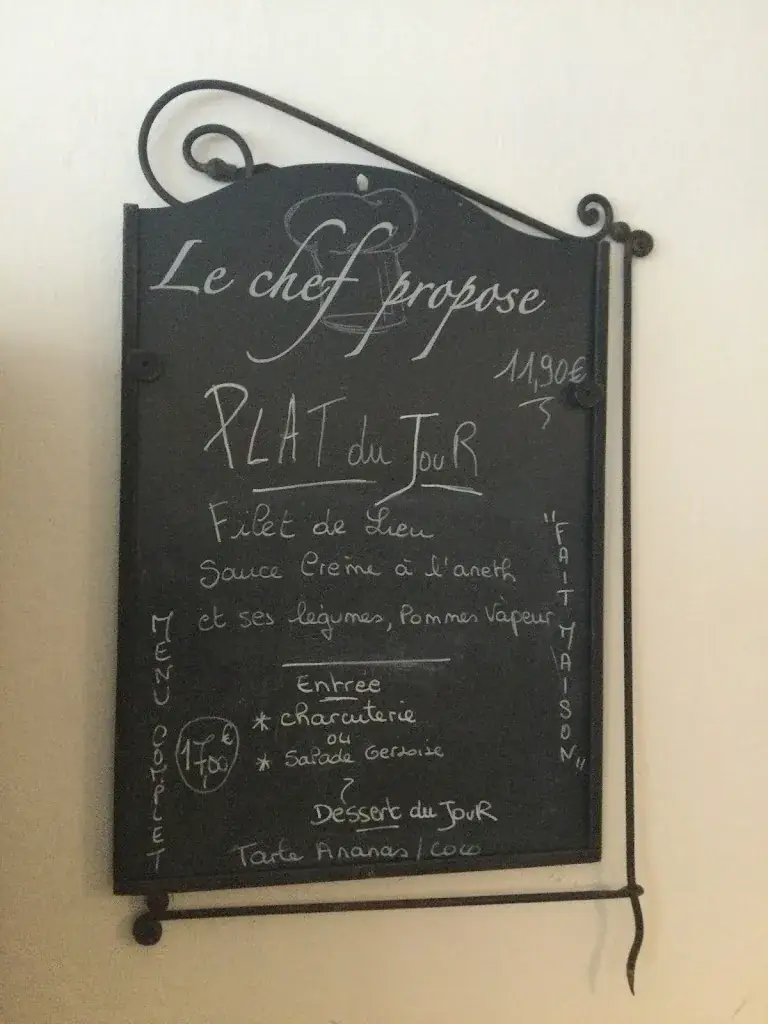 Le chef propose
11,90€
PLAT du JouR
Filet de Lieu
Sauce Crème à l'aneth
et ses légumes, Pommes Vapeur
"FAIT MAISON"
MENU COMPLET
17,00€
Entrée
* charcuterie
ou
* Salade Gersoise
Dessert du JouR
Tarte Ananas/coco